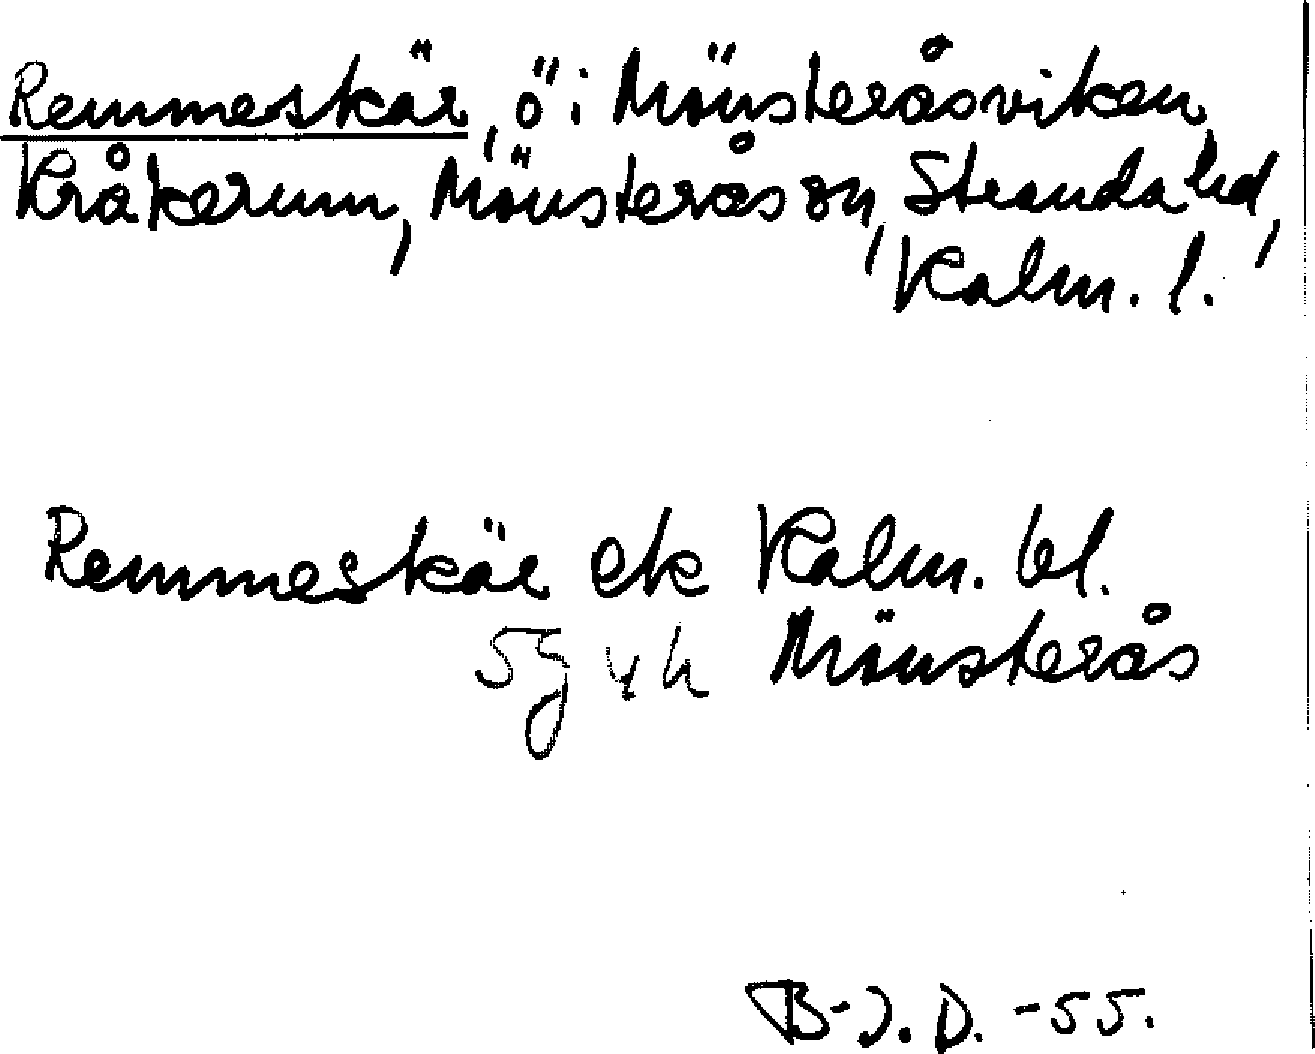 Remmeskär, ö i Mönsteråsviken,
Kråkerum, Mönsterås sn, Stranda hd,
Kalm. l.
Remmeskär ek Kalm. bl.
5g 4h Mönsterås
B-J. D. -55.